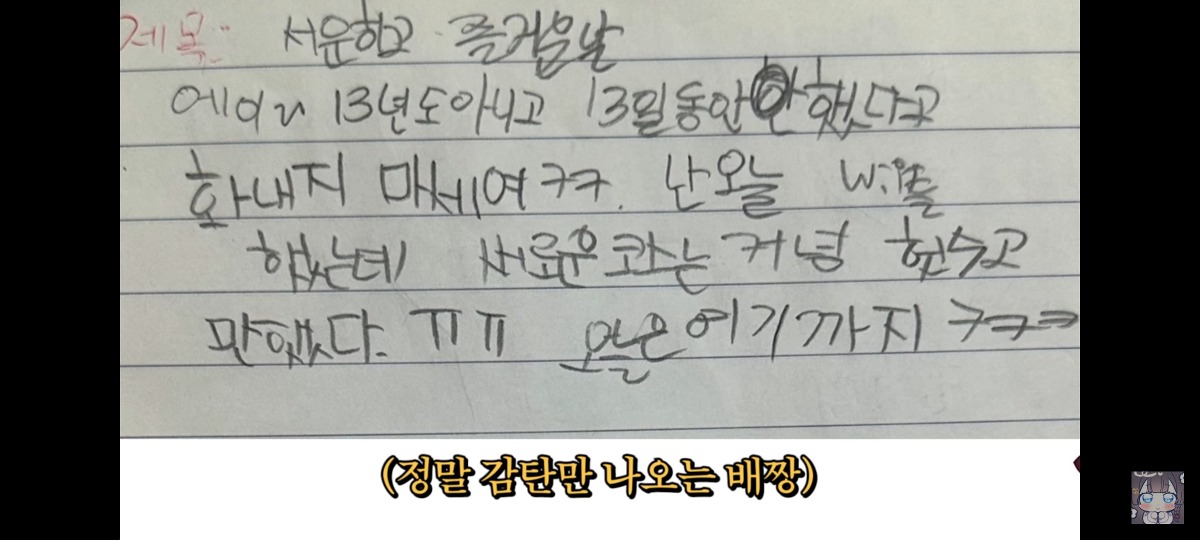 제목: 서운하고 즐거운날
에이~ 13년도아니고 13일동안 안 했다고
화내지 마세여ㅋㅋ. 난오늘 wii를
했는데 새로운코스는커녕 헛수고
만했다. ㅠㅠ 오늘은여기까지 ㅋㅋㅋ
(정말 감탄만 나오는 배짱)